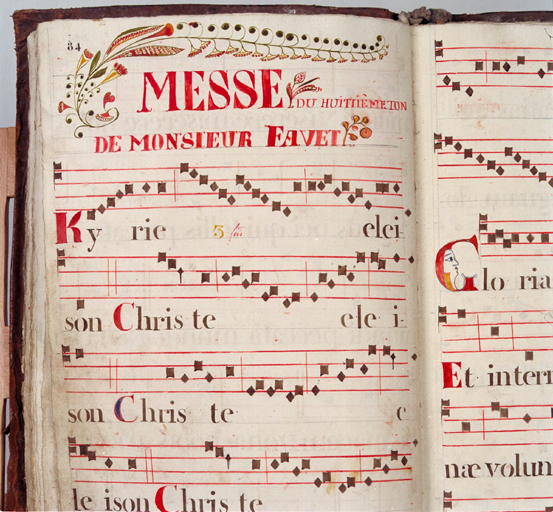 84
MESSE DU HUITIÈME TON
DE MONSIEUR FAVET
Ky rie 3 fois elei-
son Chris te ele i-
son Chris te e
le ison Chris te
Glo ria
Et interr
næ volun